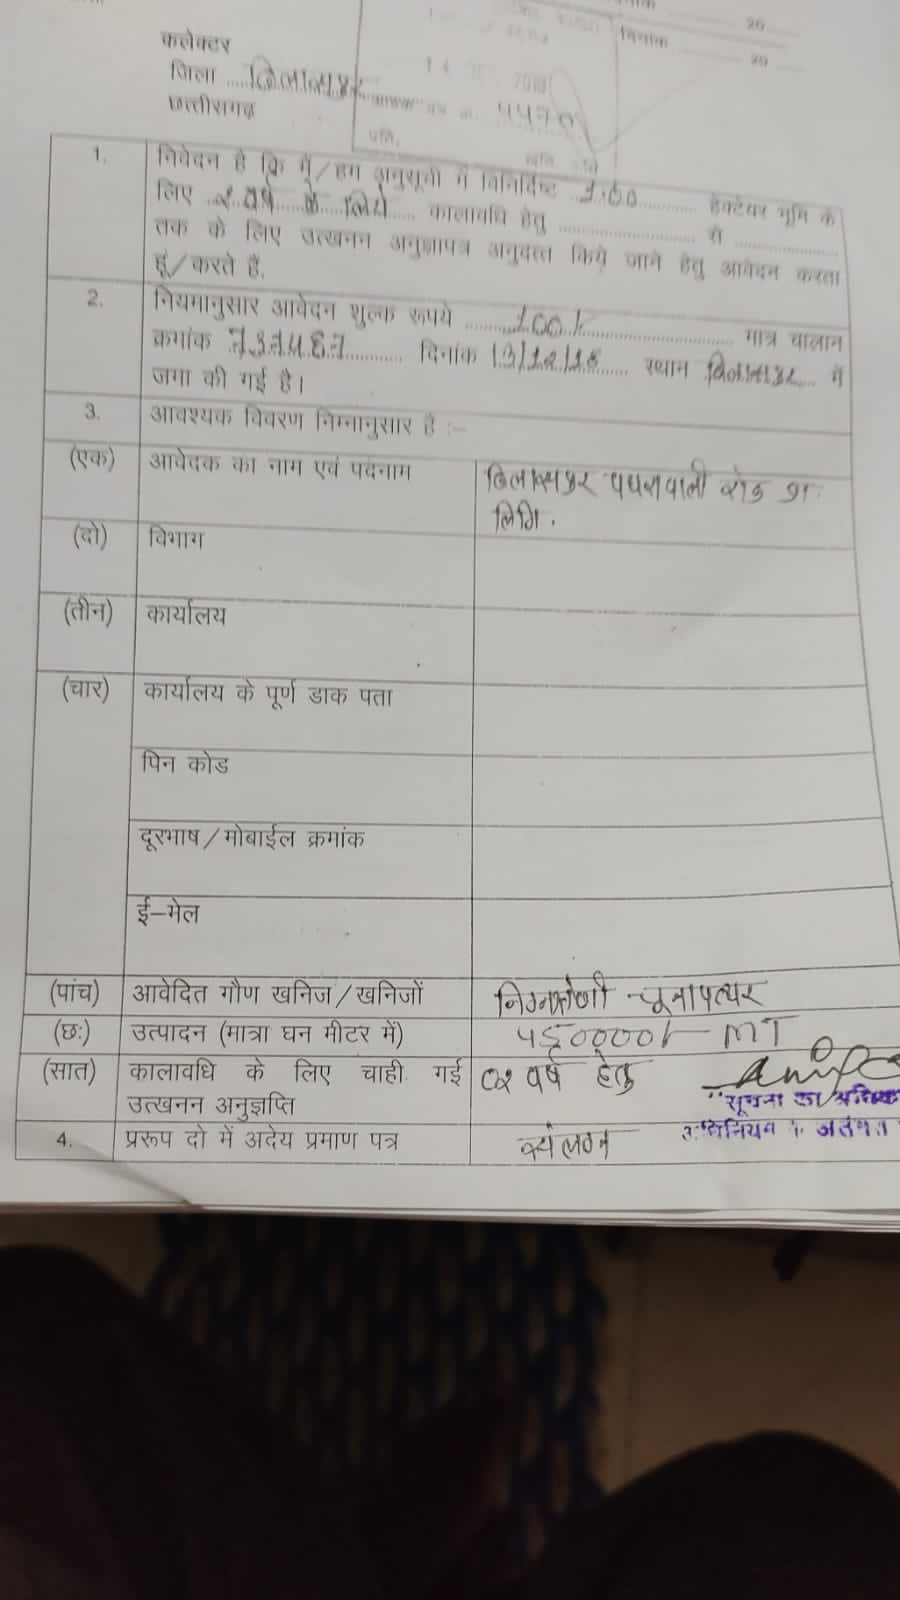 20
दिनांक
20
कलेक्टर
जिला बिलासपुर
छत्तीसगढ़
प्रति,
1. निवेदन है कि मैं/हम अनुसूची में विनिर्दिष्ट हेक्टेयर भूमि के
लिए 2 वर्ष के लिये कालावधि हेतु से
तक के लिए उत्खनन अनुज्ञापत्र अनुदत्त किये जाने हेतु आवेदन करता
हूं/करते हैं.
2. नियमानुसार आवेदन शुल्क रूपये मात्र चालान
क्रमांक दिनांक 13/12/18 स्थान बिलासपुर में
जमा की गई है।
3. आवश्यक विवरण निम्नानुसार है :–
(एक) आवेदक का नाम एवं पदनाम बिलासपुर पथरापाली रोड प्रा.
लिमि.
(दो) विभाग
(तीन) कार्यालय
(चार) कार्यालय के पूर्ण डाक पता
पिन कोड
दूरभाष/मोबाईल क्रमांक
ई–मेल
(पांच) आवेदित गौण खनिज/खनिजों निम्नश्रेणी चूनापत्थर
(छः) उत्पादन (मात्रा घन मीटर में) MT
(सात) कालावधि के लिए चाही गई 02 वर्ष हेतु
उत्खनन अनुज्ञप्ति
"सूचना का अधिकार
4. प्ररूप दो में अदेय प्रमाण पत्र संलग्न